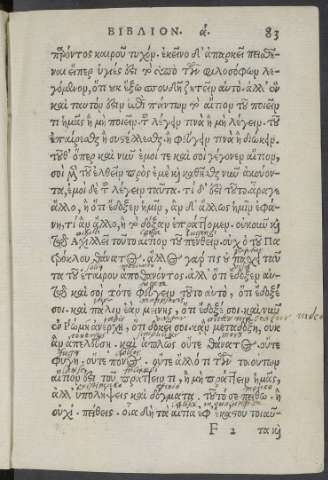 ΒΙΒΛΙΟΝ. ά. 83
παρόντος καιροῦ τυχόν. ἐκεῖνο δ' ἀπαρκεῖ πεισθῆ
ναι εἴπερ ὑγιές ὅτι τὸ ὑπὸ τῶν φιλοσόφων λε
γόμενον, ὅτι οὐκ ἔξω που δεῖ ζητεῖν αὐτό. ἀλλ' ἓν
καὶ ταυτόν ἐστιν ἐπὶ πάντων τὸ αἴτιον τοῦ ποιεῖν
τι ἡμᾶς ἢ μὴ ποιεῖν. τοῦ λέγειν τινὰ ἢ μὴ λέγειν. τοῦ
ἐπαίρεσθαι ἢ συστέλλεσθαι ἢ φεύγειν τινὰ ἢ διώκειν.
τοῦθ' ὅπερ καὶ νῦν ἐμοί τε καὶ σοὶ γέγονεν αἴτιον,
σοὶ μὲν τοῦ ἐλθεῖν πρὸς ἐμὲ καὶ καθῆσθαι νῦν ἀκούον
τα, ἐμοὶ δὲ τοῦ λέγειν ταῦτα. τί δ' ἐστὶ τοῦτο. ἆρά γε
ἄλλο, ἢ ὅτι ἔδοξεν ἡμῖν, ἂν δ' ἄλλως ἡμῖν ἐφά
νη, τί ἂν ἄλλο, ἢ τὸ δόξαν ἐπράττομεν. οὐκοῦν καὶ
τῷ Ἀχιλλεῖ τοῦτο αἴτιον τοῦ πενθεῖν. οὐχ ὁ τοῦ Πα
τρόκλου θάνατος. ἄλλος γάρ τις οὐ πάσχει ταῦ
τα τοῦ ἑταίρου ἀποθανόντος. ἀλλ' ὅτι ἔδοξεν αὐ
τῷ καὶ σοὶ τότε φεύγειν τοῦτο αὐτό, ὅτι ἔδοξέ
σοι. καὶ πάλιν ἐὰν μείνῃς, ὅτι ἔδοξέ σοι. καὶ νῦν
ἐν Ῥώμῃ ἀνέρχῃ, ὅτι δοκεῖ σοι. ἐὰν μεταδόξῃ, οὐκ
ἂν ἀπελεύσῃ. καὶ ἁπλῶς οὔτε θάνατος. οὔτε
φυγή. οὔτε πόνος. οὔτε ἄλλό τι τῶν τοιούτων
αἴτιόν ἐστι τοῦ πράττειν τι, ἢ μὴ πράττειν ἡμᾶς,
ἀλλ' ὑπολήψεις καὶ δόγματα. τοῦτό σε πείθω. ἢ
οὐχί. πείθεις. οἷα δὴ τὰ αἴτια ἐφ' ἑκάστου τοιαῦ-
F 2 τα καὶ